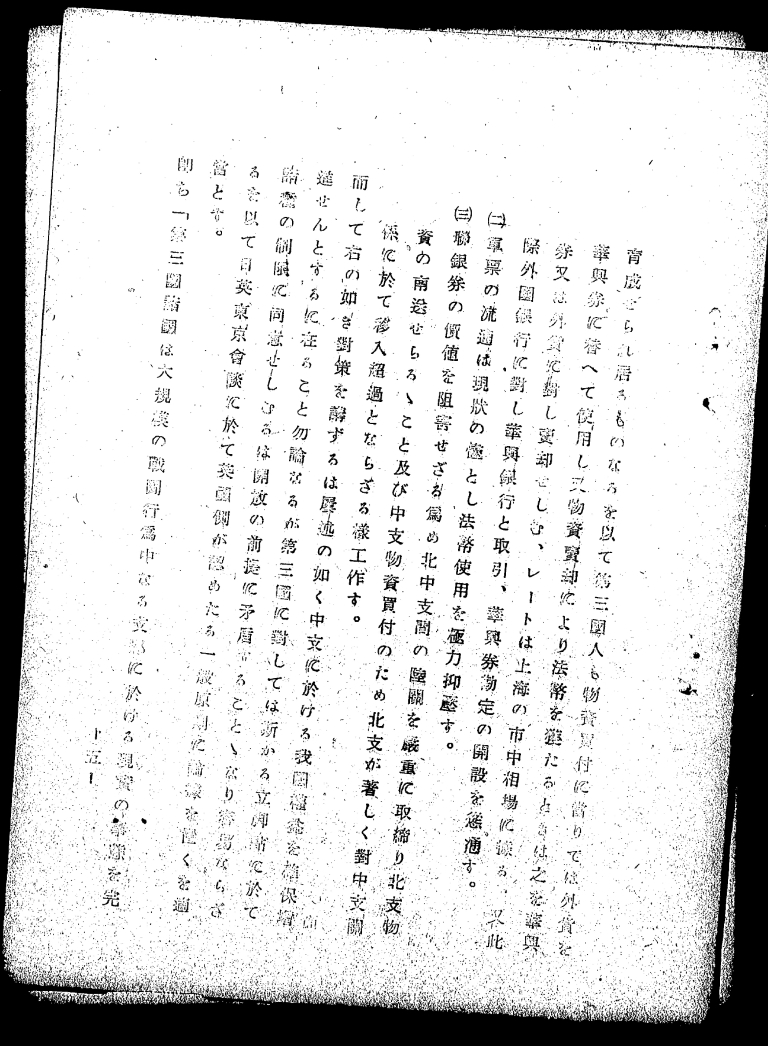 育成せられ居るものなるを以て第三國人も物資買付に當りては外貨を
華興券に替へて使用し又物資賣却により法幣を獲たるときは之を華興
券又は外貨に對し賣却せしむ、レートは上海の市中相場に據る、又此
際外國銀行に對し華興銀行と取引、華興券勘定の開設を慫慂す。
㈡軍票の流通は現狀の儘とし法幣使用を極力抑壓す。
㈢聯銀券の價値を阻害せざる爲め北中支間の陸關を嚴重に取締り北支物
資の南送せらるゝこと及び中支物資買付のため北支が著しく對中支關
係に於て移入超過とならざる樣工作す。
而して右の如き對策を講ずるは屢述の如く中支に於ける我國權益を確保增
進せんとするに在ること勿論なるが第三國に對しては斯かる立脚點に於て
諸種の制限に同意せしむるは開放の前提に矛盾することゝなり容易ならざ
るを以て日英東京會談に於て英國側が認めたる一般原則に論據を置くを適
當とす。
即ち「第三國諸國は大規模の戰鬪行爲中なる支那に於ける現實の事態を完
十五